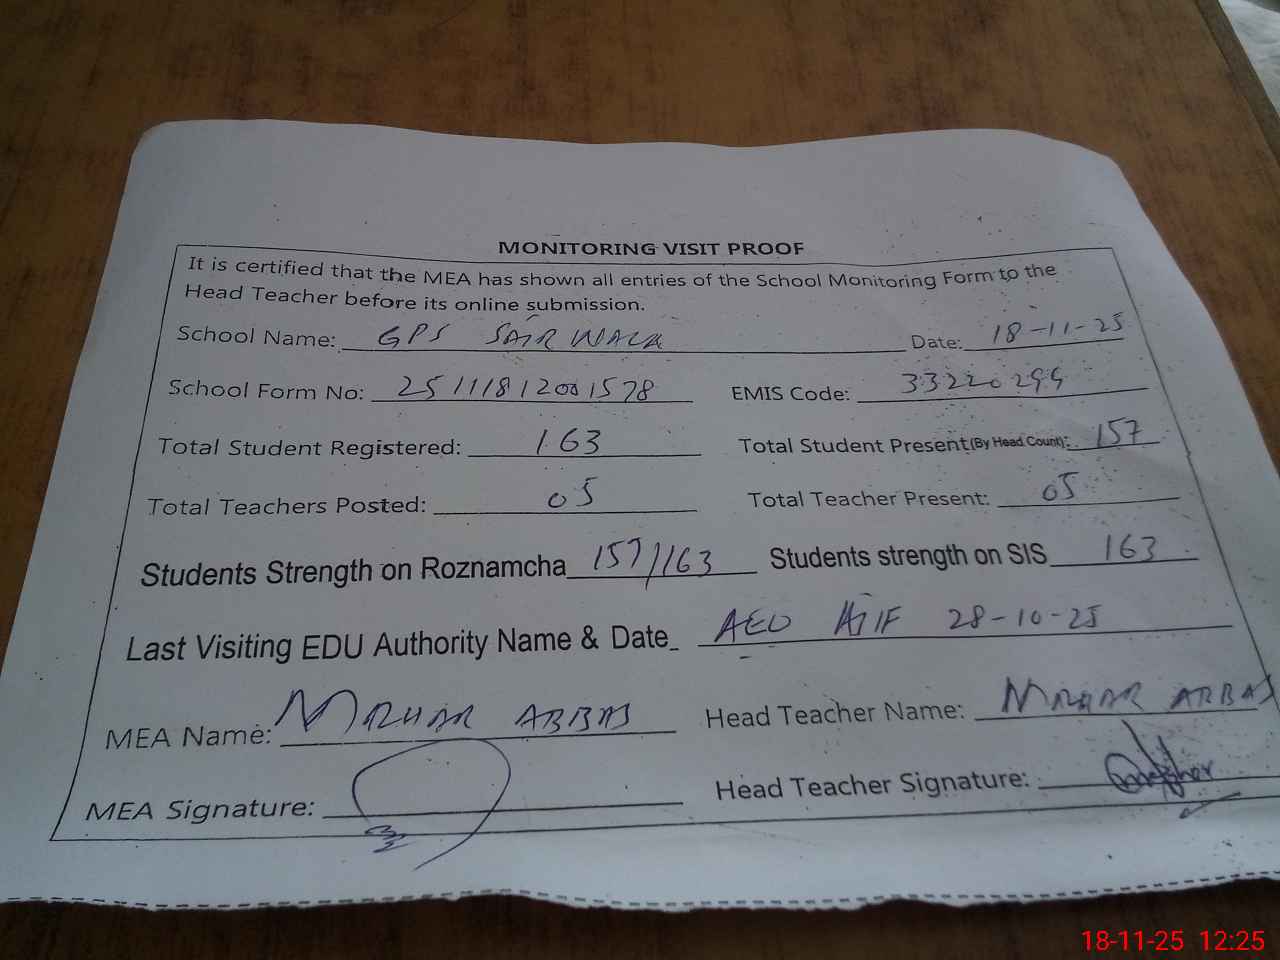 MONITORING VISIT PROOF
It is certified that the MEA has shown all entries of the School Monitoring Form to the
Head Teacher before its online submission.
School Name: GPS SAIRWALA Date: 18-11-25
School Form No: 25111812001578 EMIS Code: 33220299
Total Student Registered: 163 Total Student Present(By Head Count): 157
Total Teachers Posted: 05 Total Teacher Present: 05
Students Strength on Roznamcha 157/163 Students strength on SIS 163
Last Visiting EDU Authority Name & Date AEO ATIF 28-10-25
MEA Name: MAZHAR ABBAS Head Teacher Name: MAZHAR ABBAS
MEA Signature: Head Teacher Signature:
18-11-25 12:25